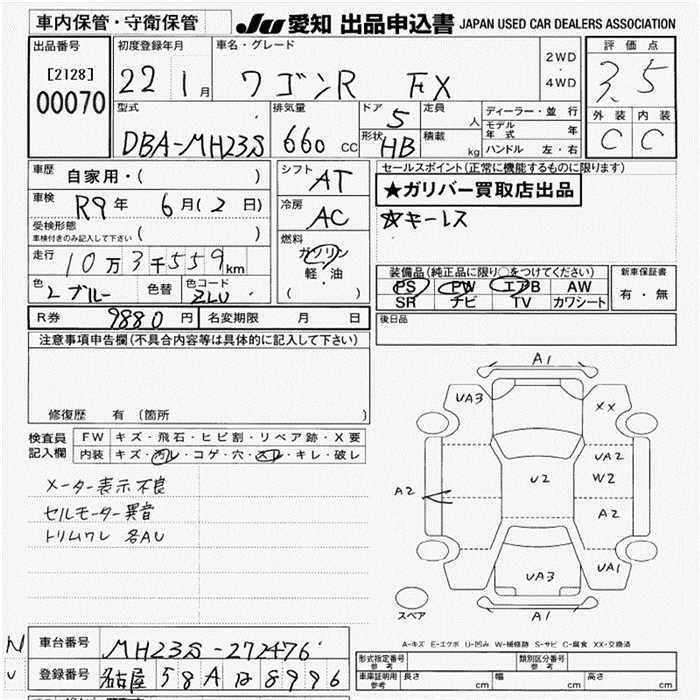 車内保管・守衛保管
JU 愛知 出品申込書 JAPAN USED CAR DEALERS ASSOCIATION
出品番号
[2128]
00070
初度登録年月
22 1月
車名・グレード
ワゴンR FX
2WD
・
4WD
評価点
3.5
外装 内装
C C
型式
DBA-MH23S
排気量
660 CC
ドア
5
形状
HB
定員
人
積載
kg
ディーラー・並行
モデル年式 年
ハンドル 左・右
車歴 自家用・( )
車検 R9年 6月(2日)
受検形態
車検付きのみ記入して下さい ( )
走行 10万3千559km
色 Lブルー 色替 色コード ZLU
シフト AT
冷房 AC
燃料
ガソリン
軽・油
( )
セールスポイント(正常に機能するものに限ります)
★ガリバー買取店出品
☆キーレス
装備品(純正品に限り○をつけてください)
PS PW エアB AW
SR ナビ TV カワシート
新車保証書
有・無
R券 9880円 名変期限 月 日
後日品
注意事項申告欄(不具合内容等は具体的に記入して下さい)
修復歴 有(箇所 )
検査員記入欄
FW キズ・飛石・ヒビ割・リペア跡・X要
内装 キズ・汚レ・コゲ・穴・スレ・キレ・破レ
メーター表示不良
セルモーター異音
トリムワレ 各AU
A1
UA3 XX
UA2
U2 W2
A2 A2
UA3 UA1
スペア A1
A-キズ E-エクボ U-凹み W-補修跡 S-サビ C-腐食 XX-交換済
車台番号 MH23S-272476
登録番号 名古屋 58A は 8996
N
U
形式指定番号
参考
類別区分番号
参考
車庫証明用
参考
長さ cm 幅 cm 高さ cm